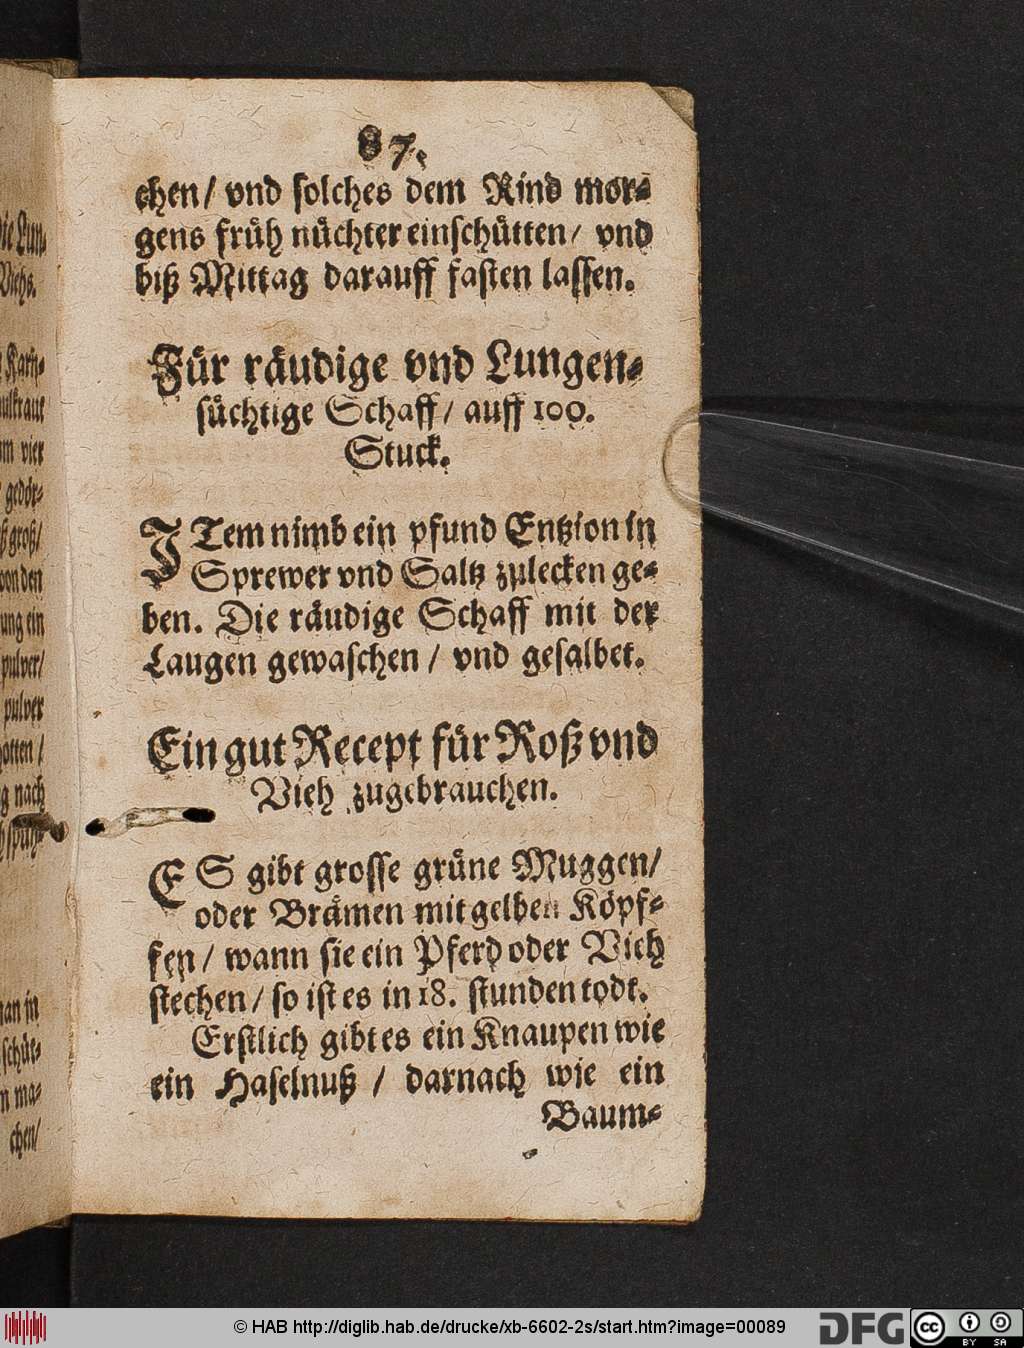 die Lun-
Viehs.
Karn-
vier
gedör-
groß/
von den
ung ein
pulver/
pulver
nach
man in
schüt-
n ma-
chen/
87.
chen/ vnd solches dem Rind mor-
gens früh nüchter einschütten/ vnd
biß Mittag darauff fasten lassen.
Für räudige vnd Lungen-
süchtige Schaff/ auff 100.
Stuck.
ITem nimb ein pfund Entzion in
Sprewer vnd Saltz zulecken ge-
ben. Die räudige Schaff mit der
Laugen gewaschen/ vnd gesalbet.
Ein gut Recept für Roß vnd
Vieh zugebrauchen.
ES gibt grosse grüne Muggen/
oder Brämen mit gelben Köpf-
fen/ wann sie ein Pferd oder Vieh
stechen/ so ist es in 18. stunden todt.
Erstlich gibt es ein Knaupen wie
ein Haselnuß/ darnach wie ein
Baum-
© HAB http://diglib.hab.de/drucke/xb-6602-2s/start.htm?image=00089
DFG
cc
BY SA